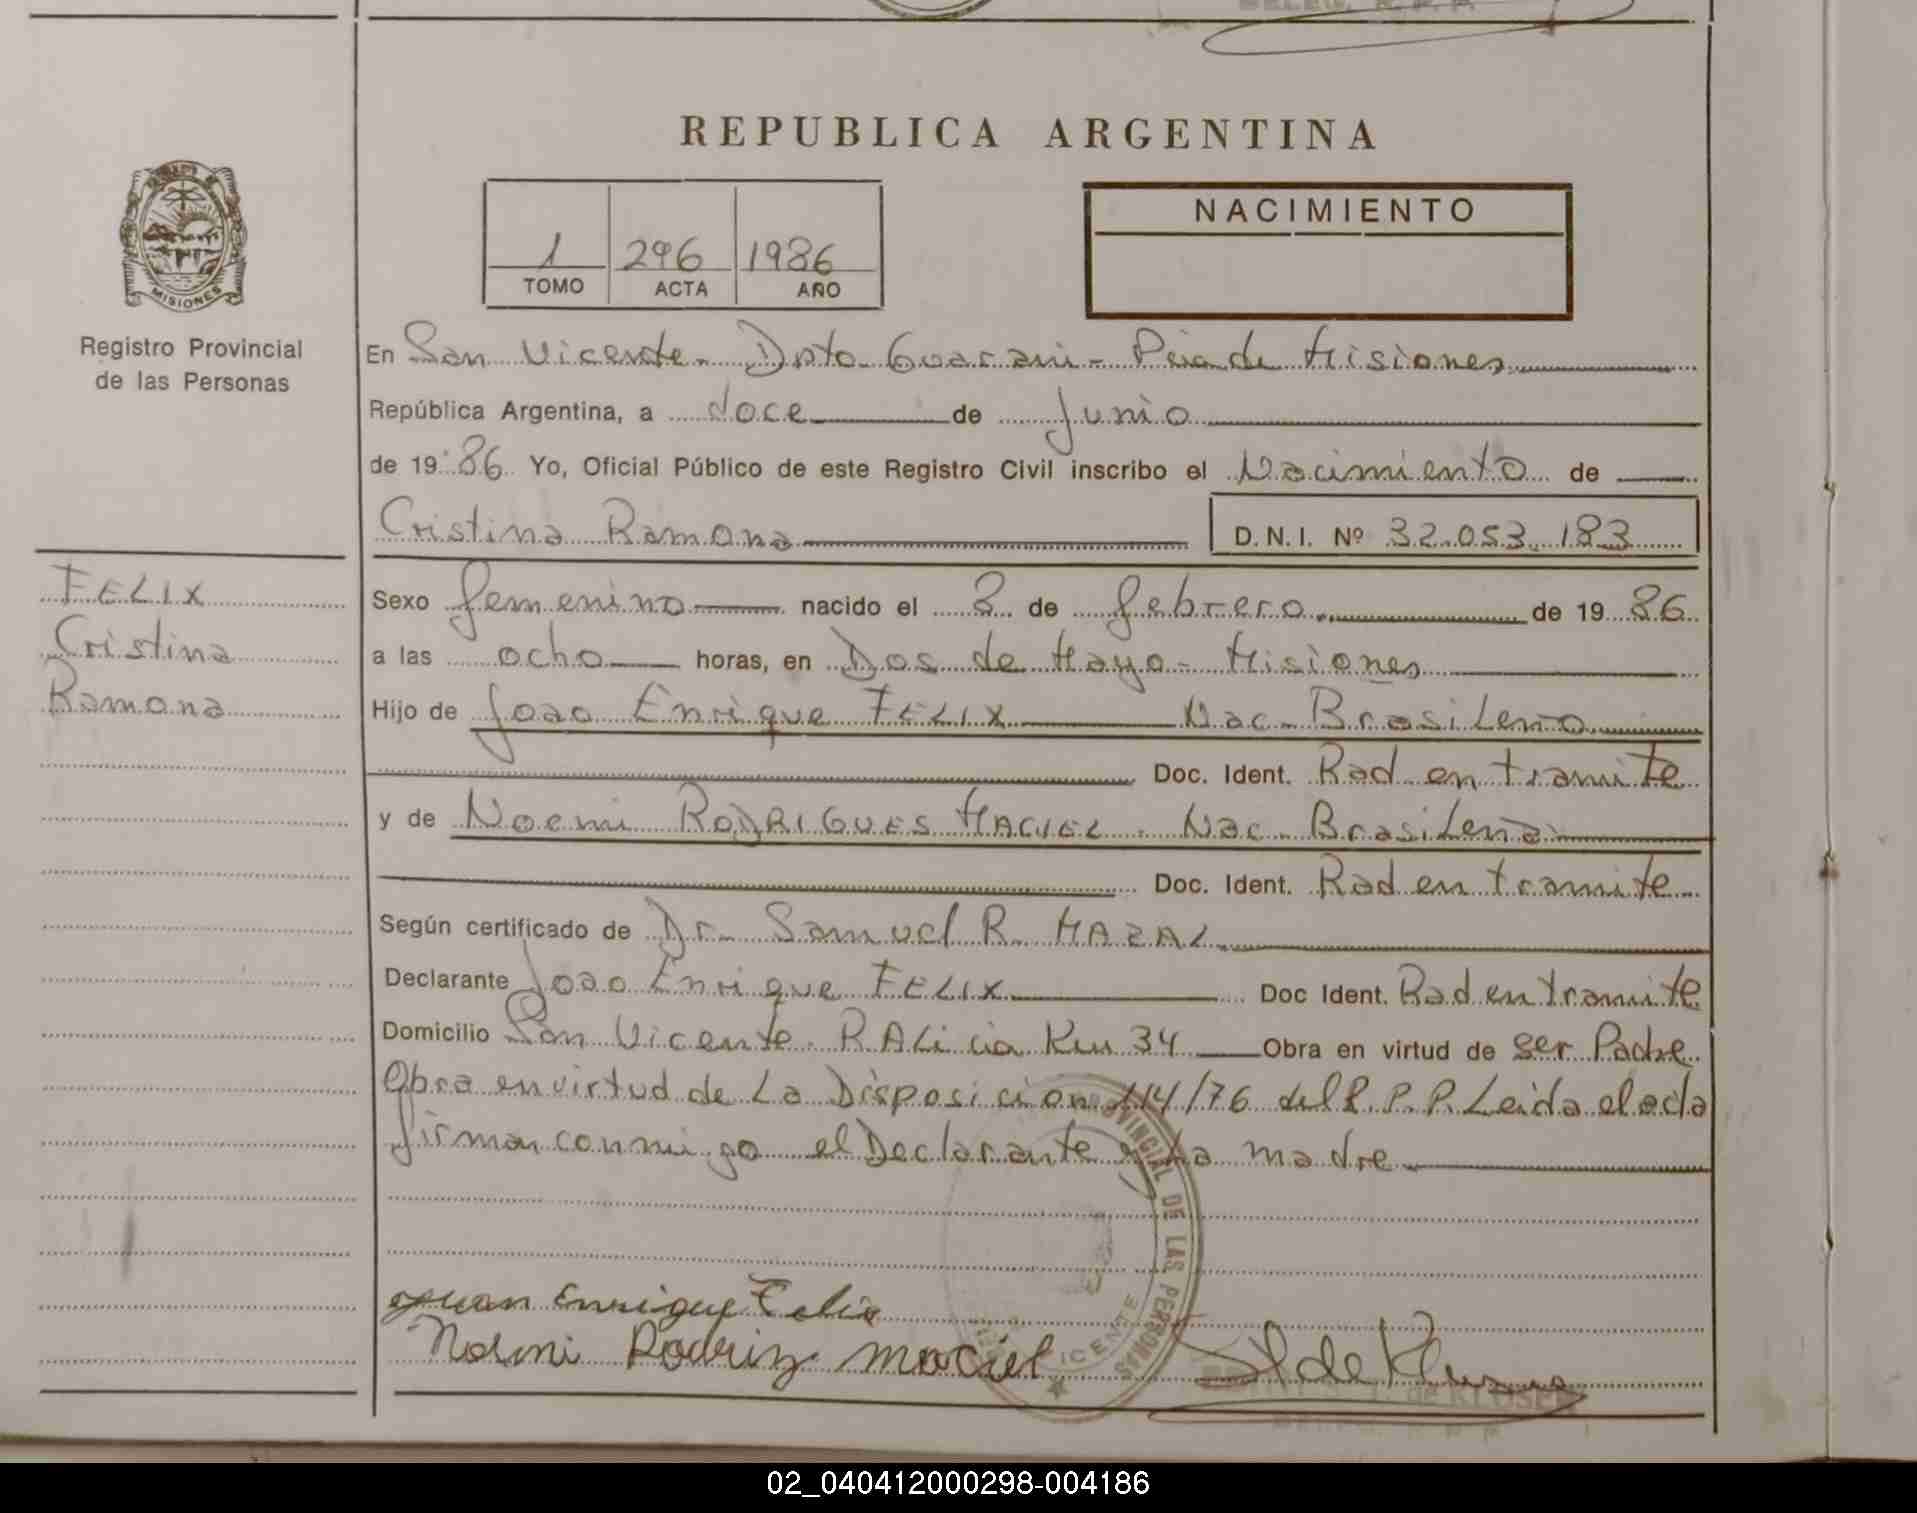 REPUBLICA ARGENTINA
NACIMIENTO
1 296 1986
TOMO ACTA AÑO
MISIONES
Registro Provincial
de las Personas
En San Vicente - Dpto Guarani - Pcia de Misiones
República Argentina, a doce de Junio
de 1986 Yo, Oficial Público de este Registro Civil inscribo el Nacimiento de
Cristina Ramona D.N.I. Nº 32.053.183
FELIX
Cristina
Ramona
Sexo femenino nacido el 8 de febrero de 1986
a las ocho horas, en Dos de Mayo - Misiones
Hijo de Joao Enrique FELIX Nac- Brasileno
Doc. Ident. Rad en tramite
y de Noemi RODRIGUES MACIEL. Nac- Brasilena
Doc. Ident. Rad en tramite
Según certificado de Dr- Samuel R. MAZAL
Declarante Joao Enrique FELIX Doc Ident. Rad en tramite
Domicilio San Vicente. R ALicia Km 34 Obra en virtud de ser Padre
Obra en virtud de La Disposicion 114/76 del R.P.P. Leida el acta
firman conmigo el Declarante y La madre
PROVINCIAL DE LAS PERSONAS
VICENTE
Juan Enrique Felix
Noemi Rodriz maciel
de KLOSER
02_040412000298-004186